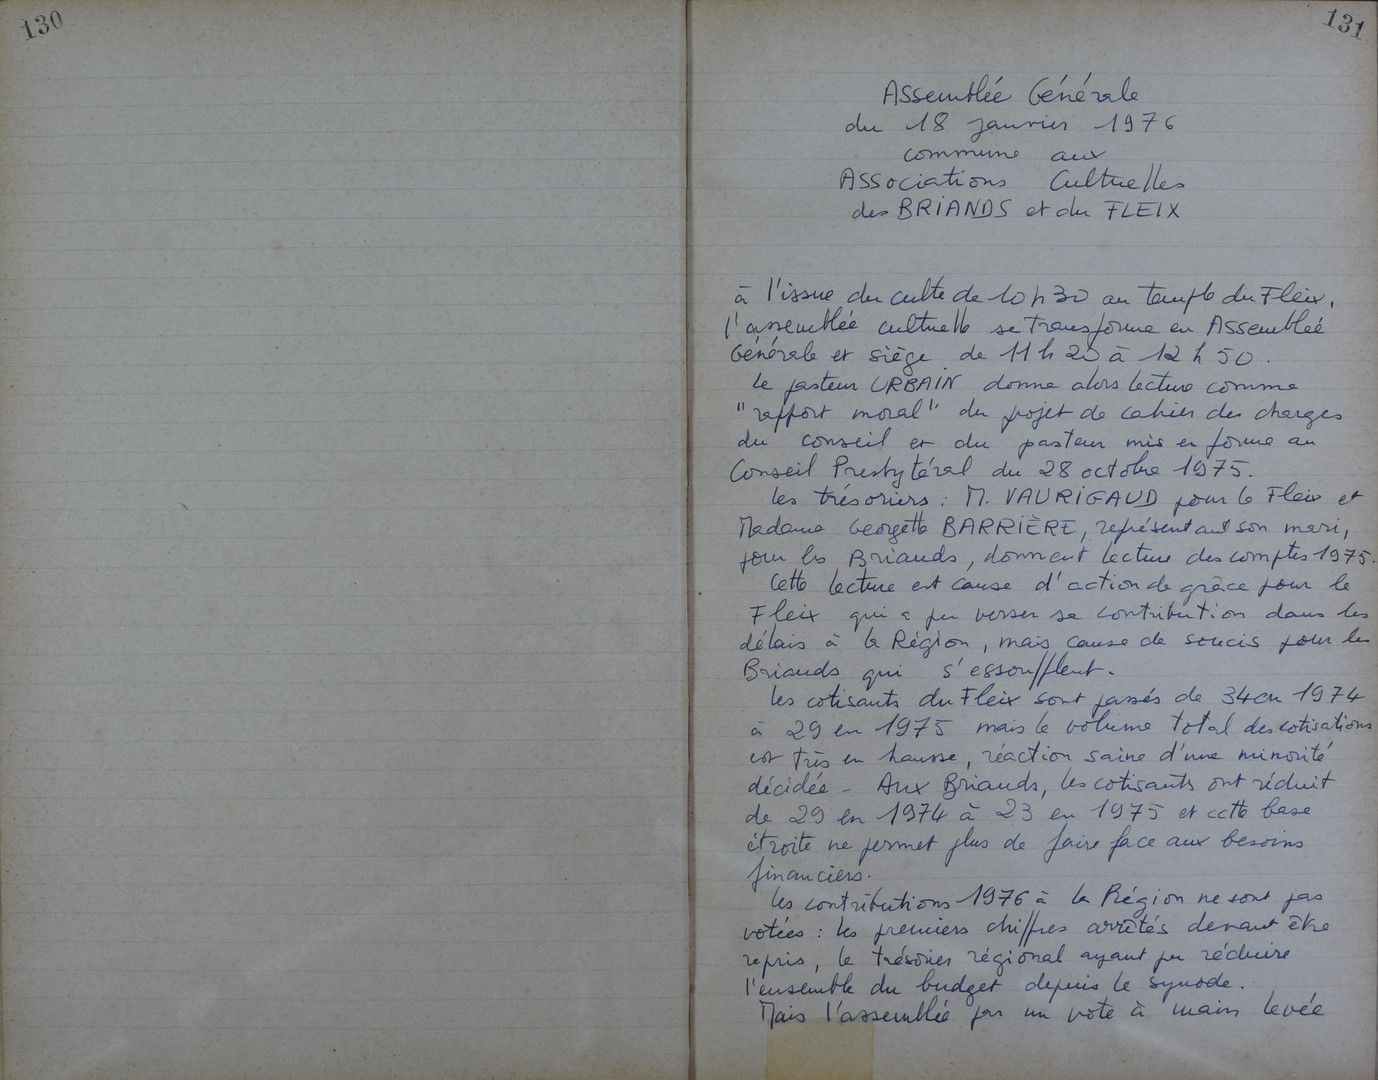 130
131
Assemblée Générale
du 18 janvier 1976
commune aux
Associations Cultuelles
des BRIANDS et du FLEIX
à l'issue du culte de 10 h 30 au temple du Fleix,
l'assemblée cultuelle se transforme en Assemblée
Générale et siège de 11 h 20 à 12 h 50.
Le pasteur URBAIN donne alors lecture comme
"rapport moral" du projet de cahier des charges
du conseil et du pasteur mis en forme au
Conseil Presbytéral du 28 octobre 1975.
Les trésoriers : M. VAURIGAUD pour le Fleix et
Madame Georgette BARRIÈRE, représentant son mari,
pour les Briands, donnent lecture des comptes 1975.
Cette lecture est cause d'action de grâce pour le
Fleix qui a pu verser sa contribution dans les
délais à la Région, mais cause de soucis pour les
Briands qui s'essoufflent.
Les cotisants du Fleix sont passés de 34 en 1974
à 29 en 1975 mais le volume total des cotisations
est très en hausse, réaction saine d'une minorité
décidée - Aux Briands, les cotisants ont réduit
de 29 en 1974 à 23 en 1975 et cette base
étroite ne permet plus de faire face aux besoins
financiers.
Les contributions 1976 à la Région ne sont pas
votées : les premiers chiffres arrêtés devant être
repris, le trésorier régional ayant pu réduire
l'ensemble du budget depuis le synode.
Mais l'assemblée par un vote à main levée